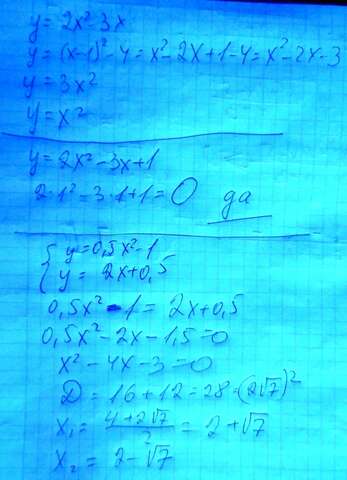 y = 2x² - 3x
y = (x-1)² - 4 = x² - 2x + 1 - 4 = x² - 2x - 3
y = 3x²
y = x²
y = 2x² - 3x + 1
2·1² - 3·1 + 1 = 0 да
{ y = 0,5x² - 1
{ y = 2x + 0,5
0,5x² - 1 = 2x + 0,5
0,5x² - 2x - 1,5 = 0
x² - 4x - 3 = 0
D = 16 + 12 = 28 = (2√7)²
x₁ = (4 + 2√7)/2 = 2 + √7
x₂ = 2 - √7